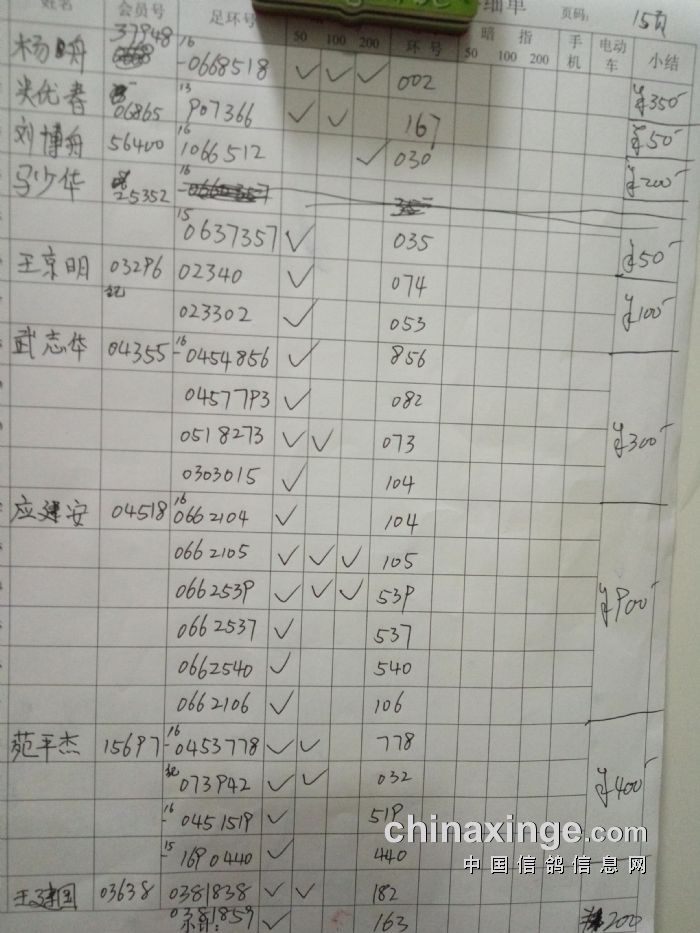 姓名 会员号 足环号 细单 页码: 15页
50 100 200 环号 暗 指 50 100 200 手机 电动车 小结
杨 37948 16 -0668518 ✓ ✓ ✓ 002 ¥350-
优春 06865 13 907366 ✓ ✓ 167 ¥50-
刘博舟 56400 16 1066512 ✓ 030 ¥200-
马少华 25352 16
15 0637357 ✓ 035 ¥50-
王京明 03296 02340 ✓ 074
023302 ✓ 053 ¥100-
武志华 04355 16 -0454856 ✓ 856
0457793 ✓ 082
0518273 ✓ ✓ 073 ¥300-
0303015 ✓ 104
应建安 04518 16 0662104 ✓ 104
0662105 ✓ ✓ ✓ 105
0662539 ✓ ✓ ✓ 539 ¥900-
0662537 ✓ 537
0662540 ✓ 540
0662106 ✓ 106
苑平杰 15697 16 -0453778 ✓ ✓ 778
073942 ✓ ✓ 032 ¥400-
16 -0451519 ✓ 519
15 -1690440 ✓ 440
chinaxinge.com
中国信鸽信息网
王建国 03638 0381838 ✓ ✓ 182
0381859 ✓ 163 200